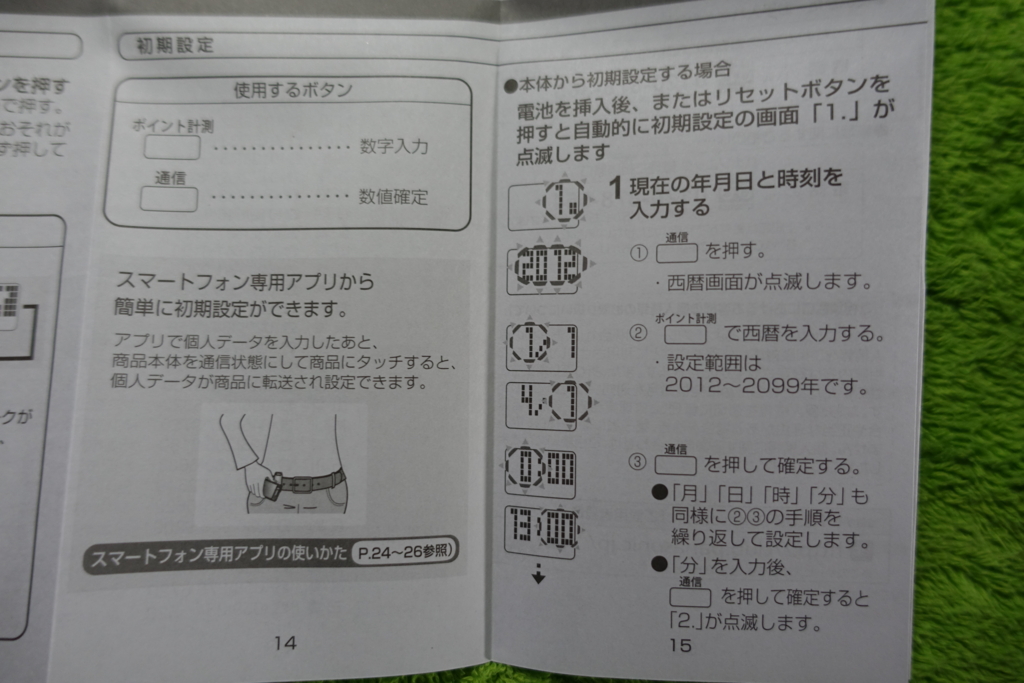 ンを押す
で押す。
おそれが
ず押して
クが
初期設定
使用するボタン
ポイント計測
・・・・・・・・・・・・・・・ 数字入力
通信
・・・・・・・・・・・・・・・ 数値確定
スマートフォン専用アプリから
簡単に初期設定ができます。
アプリで個人データを入力したあと、
商品本体を通信状態にして商品にタッチすると、
個人データが商品に転送され設定できます。
スマートフォン専用アプリの使いかた P.24～26参照)
14
●本体から初期設定する場合
電池を挿入後、またはリセットボタンを
押すと自動的に初期設定の画面「1.」が
点滅します
1 現在の年月日と時刻を
入力する
① 通信 を押す。
・西暦画面が点滅します。
② ポイント計測 で西暦を入力する。
・設定範囲は
2012～2099年です。
③ 通信 を押して確定する。
●「月」「日」「時」「分」も
同様に②③の手順を
繰り返して設定します。
●「分」を入力後、
通信 を押して確定すると
「2.」が点滅します。
1.
2012
1/ 1
4/ 1
0:00
13:00
15